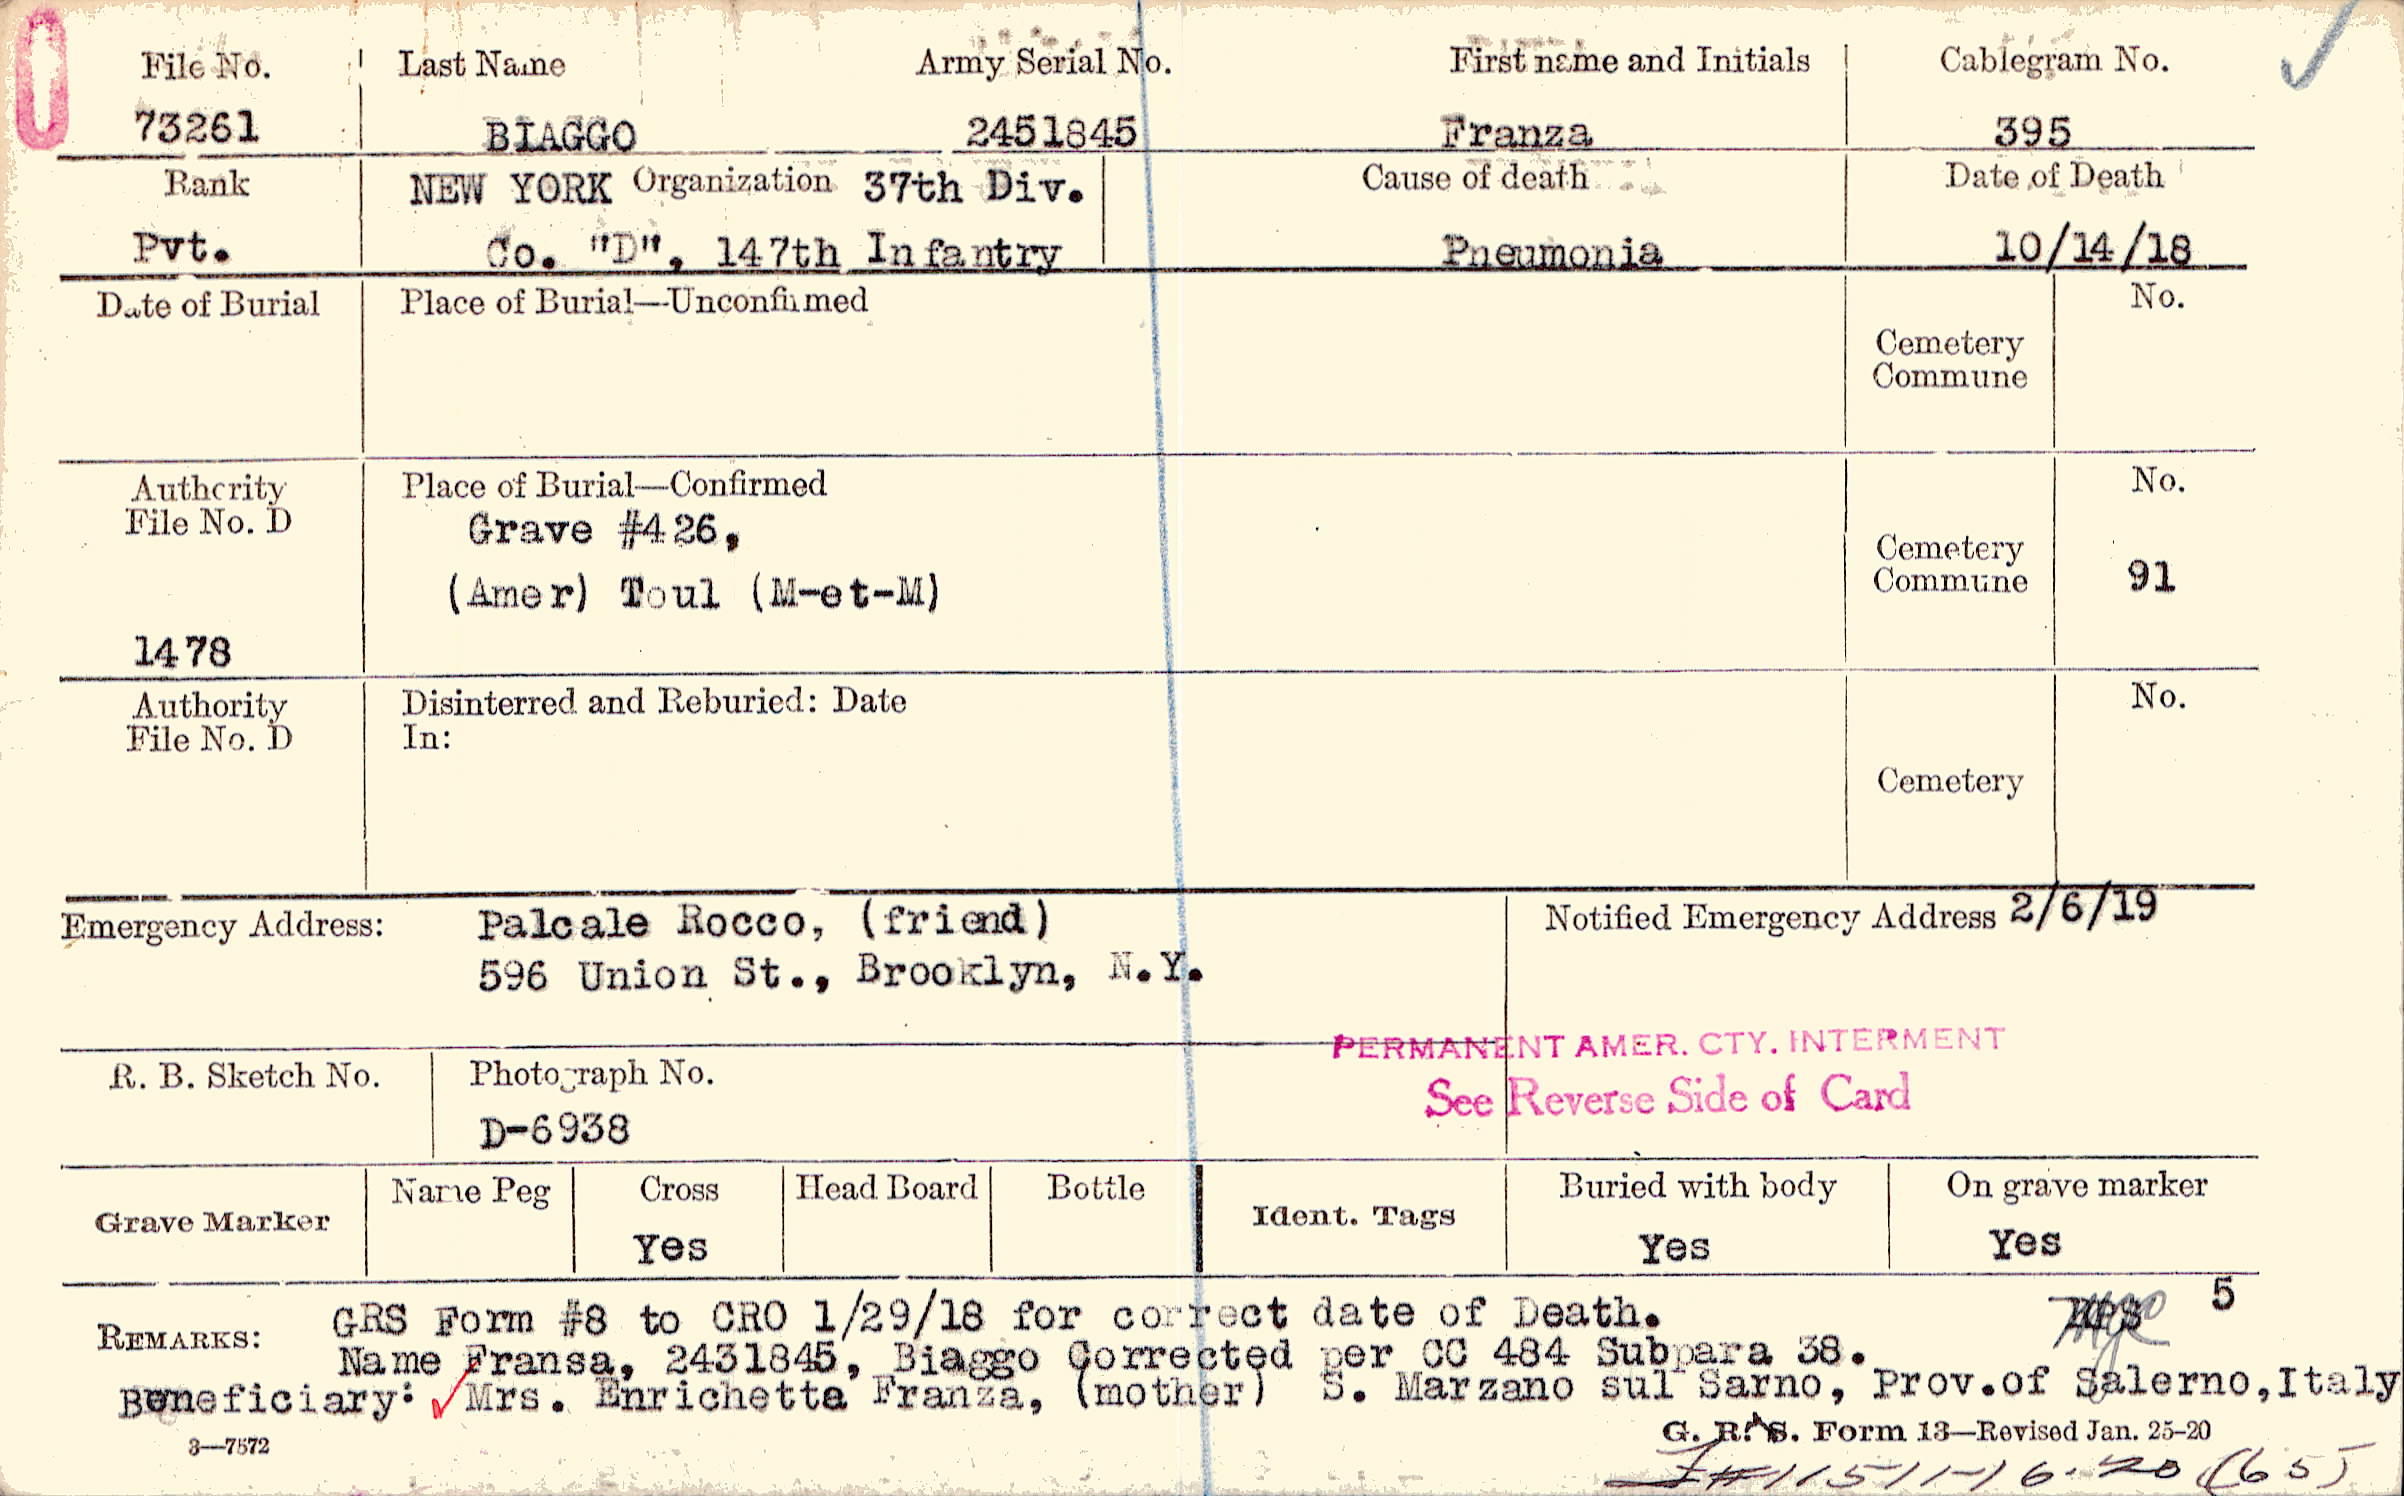 File No. Last Name Army Serial No. First name and Initials Cablegram No.
73261 BIAGGO 2451845 Franza 395
Rank NEW YORK Organization 37th Div. Cause of death Date of Death
Pvt. Co. "D", 147th Infantry Pneumonia 10/14/18
Date of Burial Place of Burial—Unconfirmed No.
Cemetery
Commune
Authority Place of Burial—Confirmed No.
File No. D Grave #426,
Cemetery
(Amer) Toul (M-et-M) Commune 91
1478
Authority Disinterred and Reburied: Date No.
File No. D In:
Cemetery
Emergency Address: Palcale Rocco, (friend) Notified Emergency Address 2/6/19
596 Union St., Brooklyn, N.Y.
PERMANENT AMER. CTY. INTERMENT
R. B. Sketch No. Photograph No. See Reverse Side of Card
D-6938
Grave Marker Name Peg Cross Head Board Bottle Ident. Tags Buried with body On grave marker
Yes Yes Yes
5
REMARKS: GRS Form #8 to CRO 1/29/18 for correct date of Death.
Name Fransa, 2431845, Biaggo Corrected per CC 484 Subpara 38.
Beneficiary: Mrs. Enrichetta Franza, (mother) S. Marzano sul Sarno, Prov.of Salerno,Italy
3—7572 G. R. S. Form 13—Revised Jan. 25-20